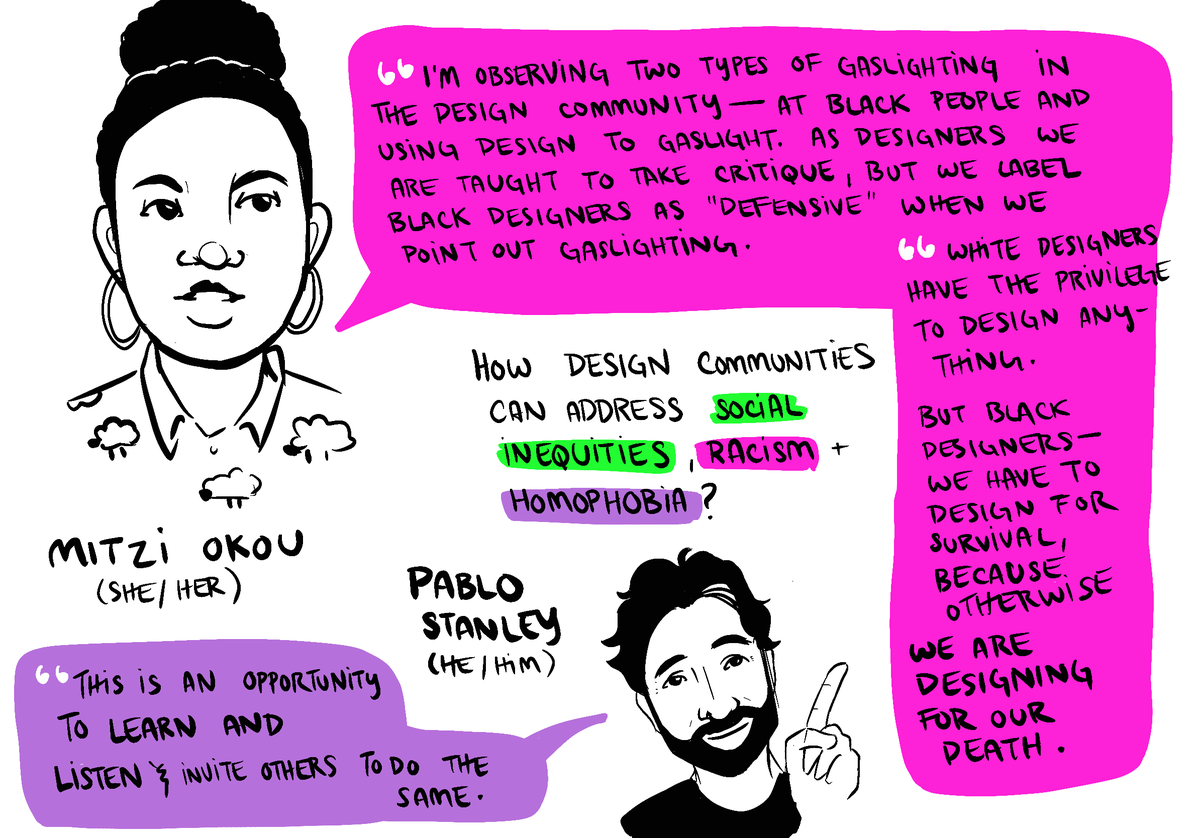 “I'M OBSERVING TWO TYPES OF GASLIGHTING IN
THE DESIGN COMMUNITY — AT BLACK PEOPLE AND
USING DESIGN TO GASLIGHT. AS DESIGNERS WE
ARE TAUGHT TO TAKE CRITIQUE, BUT WE LABEL
BLACK DESIGNERS AS "DEFENSIVE" WHEN WE
POINT OUT GASLIGHTING.
“WHITE DESIGNERS
HAVE THE PRIVILEGE
TO DESIGN ANY-
THING.
BUT BLACK
DESIGNERS—
WE HAVE TO
DESIGN FOR
SURVIVAL,
BECAUSE
OTHERWISE
WE ARE
DESIGNING
FOR OUR
DEATH.
HOW DESIGN COMMUNITIES
CAN ADDRESS SOCIAL
INEQUITIES, RACISM +
HOMOPHOBIA?
MITZI OKOU
(SHE/HER)
PABLO
STANLEY
(HE/HIM)
“THIS IS AN OPPORTUNITY
TO LEARN AND
LISTEN & INVITE OTHERS TO DO THE
SAME.